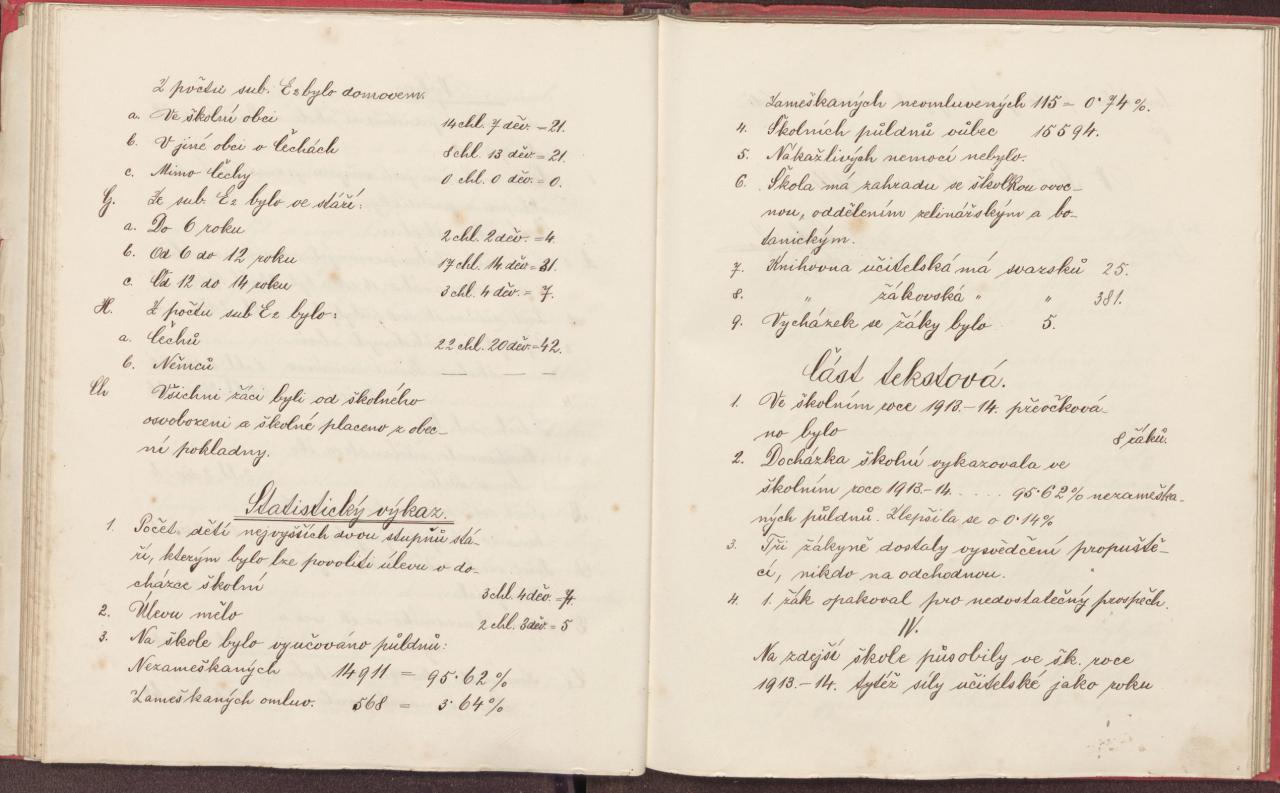 Z počtu sub. E₂ bylo domovem:
a. Ve školní obci 14 chl. 7 děv. = 21.
b. V jiné obci v Čechách 8 chl. 13 děv. = 21.
c. Mimo Čechy 0 chl. 0 děv. = 0.
G. Ze sub. E₂ bylo ve stáří:
a. Do 6 roku 2 chl. 2 děv. = 4.
b. Od 6 do 12 roku 17 chl. 14 děv. = 31.
c. Od 12 do 14 roku 3 chl. 4 děv. = 7.
H. Z počtu sub E₂ bylo:
a. Čechů 22 chl. 20 děv. = 42.
b. Němců — — —
Ch Všichni žáci byli od školného
osvobozeni a školné placeno z obec-
ní pokladny.
Statistický výkaz.
1. Počet dětí nejvyšších dvou stupňů stá-
ří, kterým bylo lze povoliti úlevu v do-
cházce školní 3 chl. 4 děv. = 7.
2. Úlevu mělo 2 chl. 3 děv. = 5
3. Na škole bylo vyučováno půldnů:
Nezameškaných 14911 = 95·62 %
Zameškaných omluv. 568 = 3·64 %
Zameškaných neomluvených 115 = 0·74 %.
4. Školních půldnů vůbec 15594.
5. Nakažlivých nemocí nebylo.
6. Škola má zahradu se školkou ovoc-
nou, oddělením zelinářským a bo-
tanickým.
7. Knihovna učitelská má svazků 25.
8. " žákovská " " 381.
9. Vycházek se žáky bylo 5.
Část tekstová.
1. Ve školním roce 1913.-14. přeočková-
no bylo 8 žáků.
2. Docházka školní vykazovala ve
školním roce 1913.-14. . . . . 95·62 % nezamešká-
ných půldnů. Zlepšila se o 0·14 %
3. Tři žákyně dostaly vysvědčení propuště-
cí, nikdo na odchodnou.
4. 1. žák opakoval pro nedostatečný prospěch.
IV.
Na zdejší škole působily ve šk. roce
1913.-14. tytéž síly učitelské jako roku